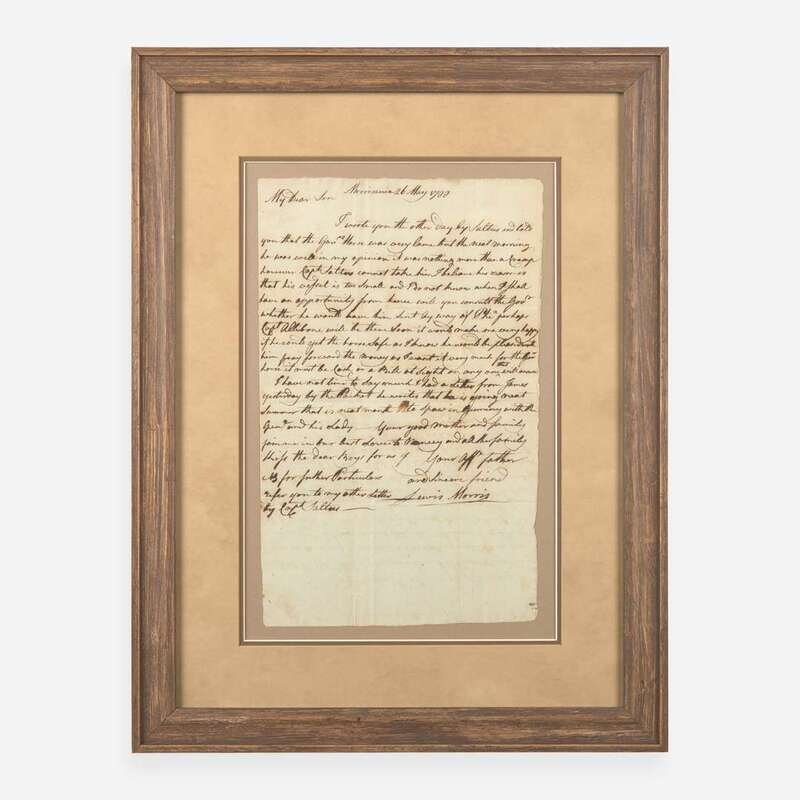 Morrisania 26 May 1793
My Dear Son
I wrote you the other day by Saltus and told
you that the Govrs Horse was very lame but the next morning
he was well in my opinion it was nothing more than a Cramp
however Capt Saltus cannot take him I believe his reason is
that his vessel is too Small and I do not know when I shall
have an opportunity from hence will you consult the Govr
whether he would have him sent by way of perhaps
Capt Allibone will be there Soon it would make me very happy
if he could get the horse Safe as I know he would be pleased with
him pray forward the money as I want it very much for the
horse it must be Cash or a Bill at Sight on any one
I have not time to Say much I had a Letter from James
yesterday by the Packet he writes that he is going next
Summer that is next month to Spaw in Germany with the
Genl and his Lady Your good Mother and family
join me in our best Loves to Nancy and all the family
Kiss the dear Boys for us Your afft father
As for futher Particulars and Sincere friend
refer you to my other Letter Lewis Morris
by Capt Saltus